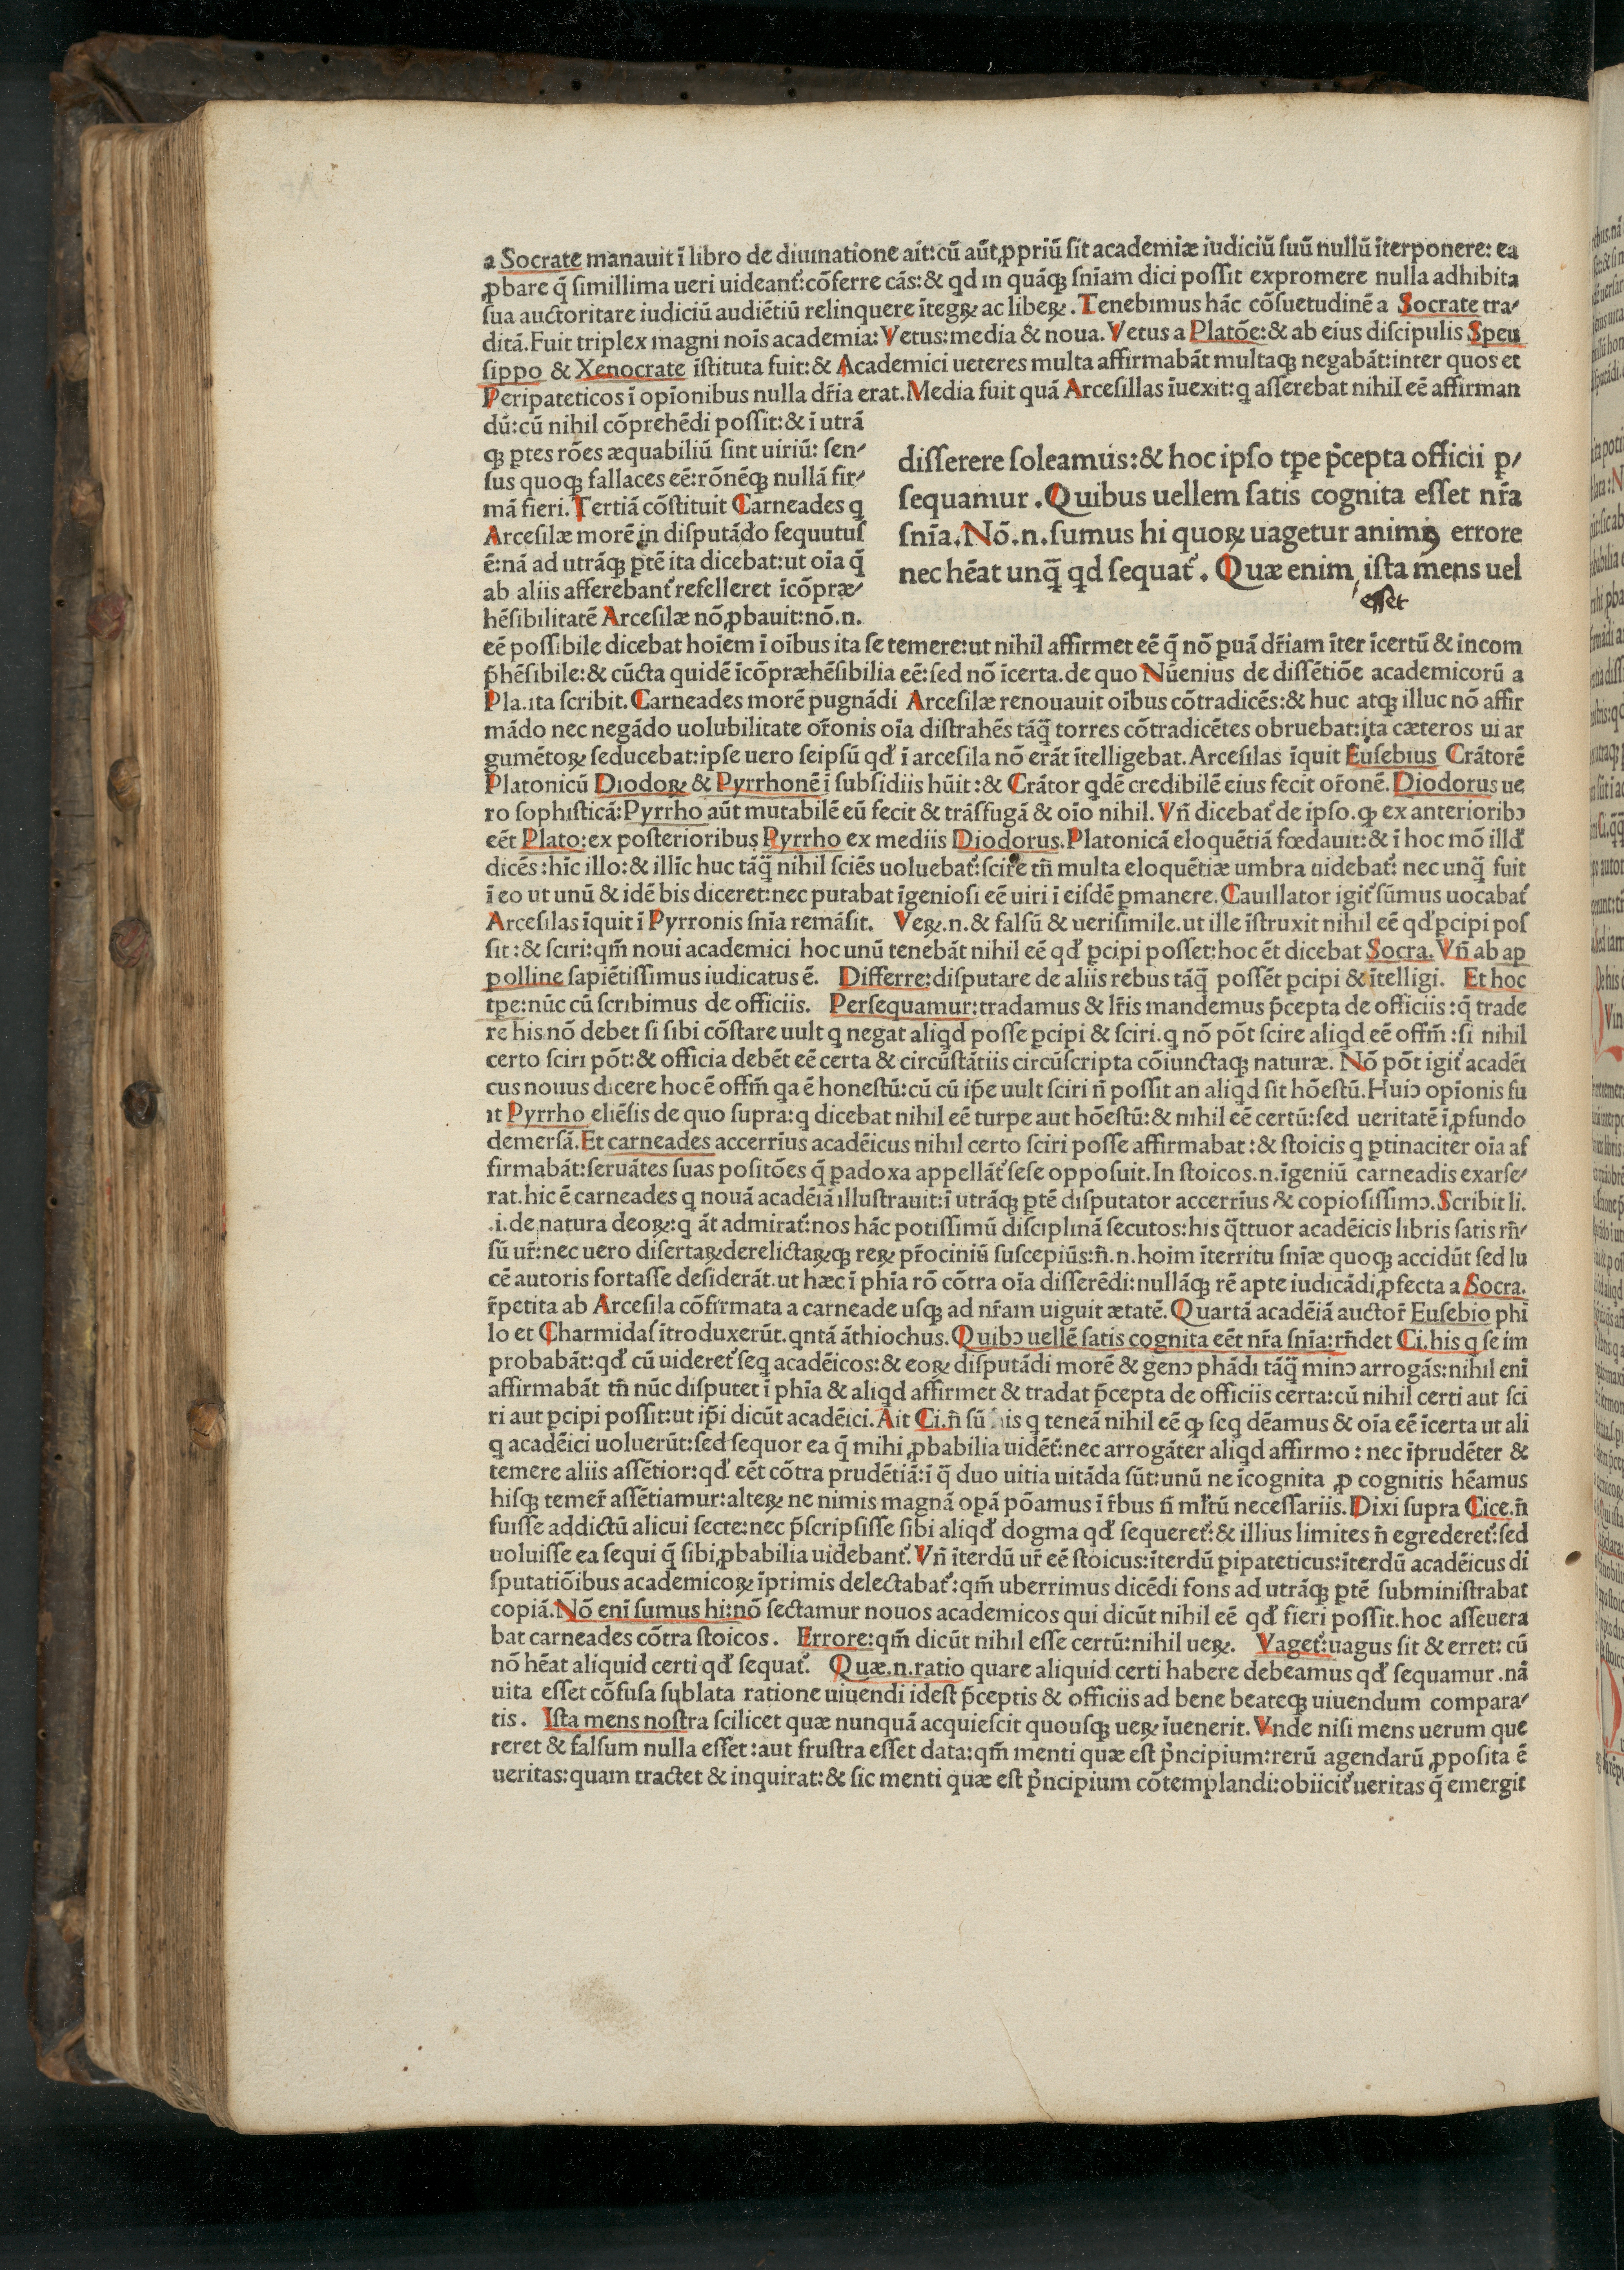 a Socrate manauit ĩ libro de diuinatione ait:cũ aũt ꝓpriũ sit academiæ iudiciũ suũ nullũ ĩterponere: ea
ꝓbare q̃ simillima ueri uideant᷑:cõferre cãs:& qd in quãqꝫ snĩam dici possit expromere nulla adhibita
sua auctoritate iudiciũ audiẽtiũ relinquere ĩtegꝝ ac libeꝝ. Tenebimus hãc cõsuetudinẽ a Socrate tra/
ditã.Fuit triplex magni noĩs academia: Vetus:media & noua. Vetus a Platõe:& ab eius discipulis Speu
sippo & Xenocrate ĩstituta fuit:& Academici ueteres multa affirmabãt multaqꝫ negabãt:inter quos et
Peripateticos ĩ opĩonibus nulla dr̃ia erat.Media fuit quã Arcesillas ĩuexit:q asserebat nihil eẽ affirman
dũ:cũ nihil cõprehẽdi possit:& ĩ utrã
qꝫ ꝑtes rões æquabiliũ sint uiriũ: sen/
sus quoqꝫ fallaces eẽ:rõnẽqꝫ nullã fir/
mã fieri. Tertiã cõstituit Carneades q
Arcesilæ morẽ in disputãdo sequutus
ẽ:nã ad utrãqꝫ ꝑtẽ ita dicebat:ut oĩa q̃
ab aliis afferebant᷑ refelleret ĩcõpræ/
hẽsibilitatẽ Arcesilæ nõ ꝓbauit:nõ.n.
disserere soleamus:& hoc ipso tꝑe p̃cepta officii ꝑ/
sequamur .Quibus uellem satis cognita esset nr̃a
snĩa.Nõ.n.sumus hi quoꝝ uagetur animꝰ errore
nec hẽat unq̃ qd sequat᷑. Quæ enim ista mens uel
esset
eẽ possibile dicebat hoĩem ĩ oĩbus ita se temere:ut nihil affirmet eẽ q̃ nõ ꝑuã dr̃iam ĩter ĩcertũ & incom
p̃hẽsibile:& cũcta quidẽ ĩcõpræhẽsibilia eẽ:sed nõ ĩcerta.de quo Nũenius de dissẽtiõe academicorũ a
Pla.ita scribit. Carneades morẽ pugnãdi Arcesilæ renouauit oĩbus cõtradicẽs:& huc atqꝫ illuc nõ affir
mãdo nec negãdo uolubilitate or̃onis oĩa distrahẽs tãq̃ torres cõtradicẽtes obruebat:ita cæteros ui ar
gumẽtoꝝ seducebat:ipse uero seipsũ qd ĩ arcesila nõ erãt ĩtelligebat. Arcesilas ĩquit Eusebius Crãtorẽ
Platonicũ Diodoꝝ & Pyrrhonẽ ĩ subsidiis hũit:& Crãtor qdẽ credibilẽ eius fecit or̃onẽ. Diodorus ue
ro sophisticã:Pyrrho aũt mutabilẽ eũ fecit & trãsfugã & oĩo nihil. Vñ dicebat᷑ de ipso.ꝙ ex anterioribꝰ
eẽt Plato:ex posterioribus Pyrrho ex mediis Diodorus.Platonicã eloquẽtiã fœdauit:& ĩ hoc mõ illd
dicẽs :hĩc illo:& illĩc huc tãq̃ nihil sciẽs uoluebat᷑:scire tñ multa eloquẽtiæ umbra uidebat᷑: nec unq̃ fuit
ĩ eo ut unũ & idẽ bis diceret:nec putabat ĩgeniosi eẽ uiri ĩ eisdẽ ꝑmanere. Cauillator igit᷑ sũmus uocabat᷑
Arcesilas ĩquit ĩ Pyrronis snĩa remãsit. Veꝝ.n.& falsũ & uerisimile.ut ille ĩstruxit nihil eẽ qd ꝑcipi pos
sit :& sciri:qm̃ noui academici hoc unũ tenebãt nihil eẽ qd ꝑcipi posset:hoc ẽt dicebat Socra. Vñ ab ap
polline sapiẽtissimus iudicatus ẽ. Differre:disputare de aliis rebus tãq̃ possẽt ꝑcipi & ĩtelligi. Et hoc
tꝑe:nũc cũ scribimus de officiis. Persequamur:tradamus & lr̃is mandemus p̃cepta de officiis :q̃ trade
re his nõ debet si sibi cõstare uult q negat aliqd posse ꝑcipi & sciri.q nõ põt scire aliqd eẽ offm̃ :si nihil
certo sciri põt:& officia debẽt eẽ certa & circũstãtiis circũscripta cõiunctaqꝫ naturæ. Nõ põt igit᷑ acadẽi
cus nouus dicere hoc ẽ offm̃ qa ẽ honestũ:cũ cũ ip̃e uult sciri ñ possit an aliqd sit hõestũ.Huiꝰ opĩonis fu
it Pyrrho eliẽsis de quo supra:q dicebat nihil eẽ turpe aut hõestũ:& nihil eẽ certũ:sed ueritatẽ ĩ ꝓfundo
demersã.Et carneades accerrĩus acadẽicus nihil certo sciri posse affirmabat :& stoicis q ꝑtinaciter oĩa af
firmabãt:seruãtes suas positões q̃ ꝑadoxa appellãt᷑ sese opposuit.In stoicos.n.ĩgeniũ carneadis exarse/
rat.hic ẽ carneades q nouã acadẽiã illustrauit:ĩ utrãqꝫ ꝑtẽ disputator accerrĩus & copiosissimꝰ.Scribit li.
.i.de natura deoꝝ:q ãt admirat᷑:nos hãc potissimũ disciplinã secutos:his q̃ttuor acadẽicis libris satis rñ/
sũ ur̃:nec uero disertaꝝ derelictaꝝqꝫ reꝝ pr̃ociniũ suscepiũs:ñ.n.hoĩm ĩterritu snĩæ quoqꝫ accidũt sed lu
cẽ autoris fortasse desiderãt.ut hæc ĩ phĩa rõ cõtra oĩa disserẽdi:nullãqꝫ rẽ apte iudicãdi ꝓfecta a Socra.
r̃petita ab Arcesila cõfirmata a carneade usqꝫ ad nr̃am uiguit ætatẽ. Quartã acadẽiã auctor̃ Eusebio phĩ
lo et Charmidas ĩtroduxerũt.qntã ãthiochus. Quibꝰ uellẽ satis cognita eẽt nr̃a snĩa:rñdet Ci.his q se im
probabãt:qd cũ uideret᷑ seq acadẽicos:& eoꝝ disputãdi morẽ & genꝰ phãdi tãq̃ minꝰ arrogãs:nihil enĩ
affirmabãt tñ nũc disputet ĩ phĩa & aliqd affirmet & tradat p̃cepta de officiis certa:cũ nihil certi aut sci
ri aut ꝑcipi possit:ut ip̃i dicũt acadẽici. Ait Ci.ñ sũ his q teneã nihil eẽ ꝙ seq dẽamus & oĩa eẽ ĩcerta ut ali
q acadẽici uoluerũt:sed sequor ea q̃ mihi ꝓbabilia uidẽt᷑:nec arrogãter aliqd affirmo : nec ĩprudẽter &
temere aliis assẽtior:qd eẽt cõtra prudẽtiã:ĩ q̃ duo uitia uitãda sũt:unũ ne ĩcognita ꝓ cognitis hẽamus
hisqꝫ temer̃ assẽtiamur:alteꝝ ne nimis magnã opã põamus ĩ r̃bus ñ ml̃tũ necessariis. Dixi supra Cice.ñ
fuisse addictũ alicui secte:nec p̃scripsisse sibi aliqd dogma qd sequeret᷑:& illius limites ñ egrederet᷑:sed
uoluisse ea sequi q̃ sibi ꝓbabilia uidebant᷑. Vñ ĩterdũ ur̃ eẽ stoicus:ĩterdũ ꝑipateticus:ĩterdũ acadẽicus di
sputatiõibus academicoꝝ ĩprimis delectabat᷑:qm̃ uberrimus dicẽdi fons ad utrãqꝫ ꝑtẽ subministrabat
copiã.Nõ enĩ sumus hi:nõ sectamur nouos academicos qui dicũt nihil eẽ qd fieri possit.hoc asseuera
bat carneades cõtra stoicos. Errore:qm̃ dicũt nihil esse certũ:nihil ueꝝ. Vaget᷑:uagus sit & erret: cũ
nõ hẽat aliquid certi qd sequat᷑. Quæ.n.ratio quare aliquid certi habere debeamus qd sequamur .nã
uita esset cõfusa sublata ratione uiuendi idest p̃ceptis & officiis ad bene beateqꝫ uiuendum compara/
tis. Ista mens nostra scilicet quæ nunquã acquiescit quousqꝫ ueꝝ ĩuenerit. Vnde nisi mens uerum que
reret & falsum nulla esset :aut frustra esset data:qm̃ menti quæ est p̃ncipium:rerũ agendarũ ꝓposita ẽ
ueritas:quam tractet & inquirat:& sic menti quæ est p̃ncipium cõtemplandi:obiicit᷑ ueritas q̃ emergit